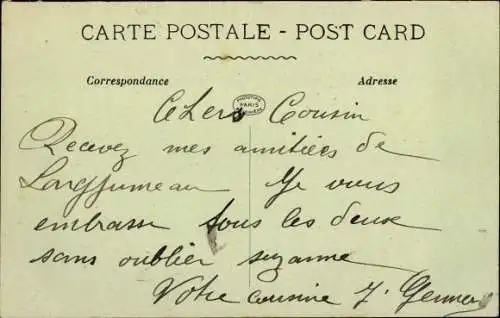 CARTE POSTALE - POST CARD
Correspondance
Adresse
PARIS
Chers Cousin
Recevez mes amitiées de
Longjumeau Je vous
embrasse tous les deux
sans oublier suzanne
Votre cousine J.